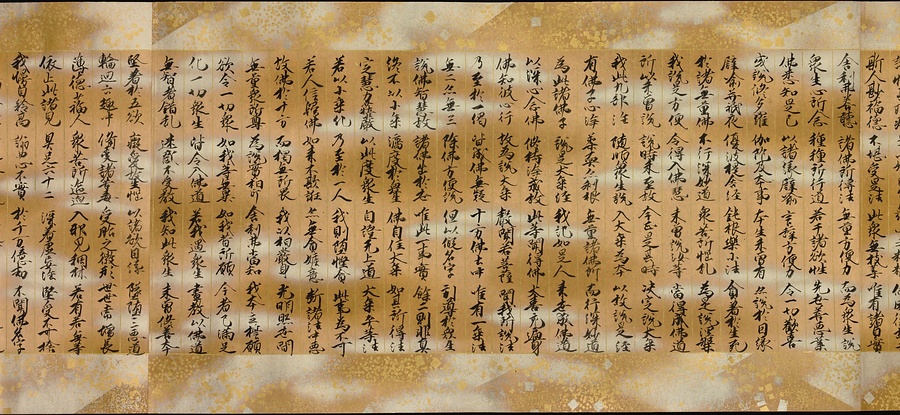 斯人尠福德 不堪受是法 此眾無枝葉 唯有諸貞實
舍利弗善聽 諸佛所得法 無量方便力 而為眾生說
眾生心所念 種種所行道 若干諸欲性 先世善惡業
佛悉知是已 以諸緣譬喻 言辭方便力 令一切歡喜
或說修多羅 伽陀及本事 本生未曾有 亦說於因緣
譬喻并祇夜 優波提舍經 鈍根樂小法 貪著於生死
於諸無量佛 不行深妙道 眾苦所惱亂 為是說涅槃
我設是方便 令得入佛慧 未曾說汝等 當得成佛道
所以未曾說 說時未至故 今正是其時 決定說大乘
我此九部法 隨順眾生說 入大乘為本 以故說是經
有佛子心淨 柔軟亦利根 無量諸佛所 而行深妙道
為此諸佛子 說是大乘經 我記如是人 來世成佛道
以深心念佛 修持淨戒故 此等聞得佛 大喜充遍身
佛知彼心行 故為說大乘 聲聞若菩薩 聞我所說法
乃至於一偈 皆成佛無疑 十方佛土中 唯有一乘法
無二亦無三 除佛方便說 但以假名字 引導於眾生
說佛智慧故 諸佛出於世 唯此一事實 餘二則非真
終不以小乘 濟度於眾生 佛自住大乘 如其所得法
定慧力莊嚴 以此度眾生 自證無上道 大乘平等法
若以小乘化 乃至於一人 我則墮慳貪 此事為不可
若人信歸佛 如來不欺誑 亦無貪嫉意 斷諸法中惡
故佛於十方 而獨無所畏 我以相嚴身 光明照世間
無量眾所尊 為說實相印 舍利弗當知 我本立誓願
欲令一切眾 如我等無異 如我昔所願 今者已滿足
化一切眾生 皆令入佛道 若我遇眾生 盡教以佛道
無智者錯亂 迷惑不受教 我知此眾生 未曾修善本
堅著於五欲 癡愛故生惱 以諸欲因緣 墜墮三惡道
輪迴六趣中 備受諸苦毒 受胎之微形 世世常增長
薄德少福人 眾苦所逼迫 入邪見稠林 若有若無等
依止此諸見 具足六十二 深著虛妄法 堅受不可捨
我慢自矜高 諂曲心不實 於千萬億劫 不聞佛名字